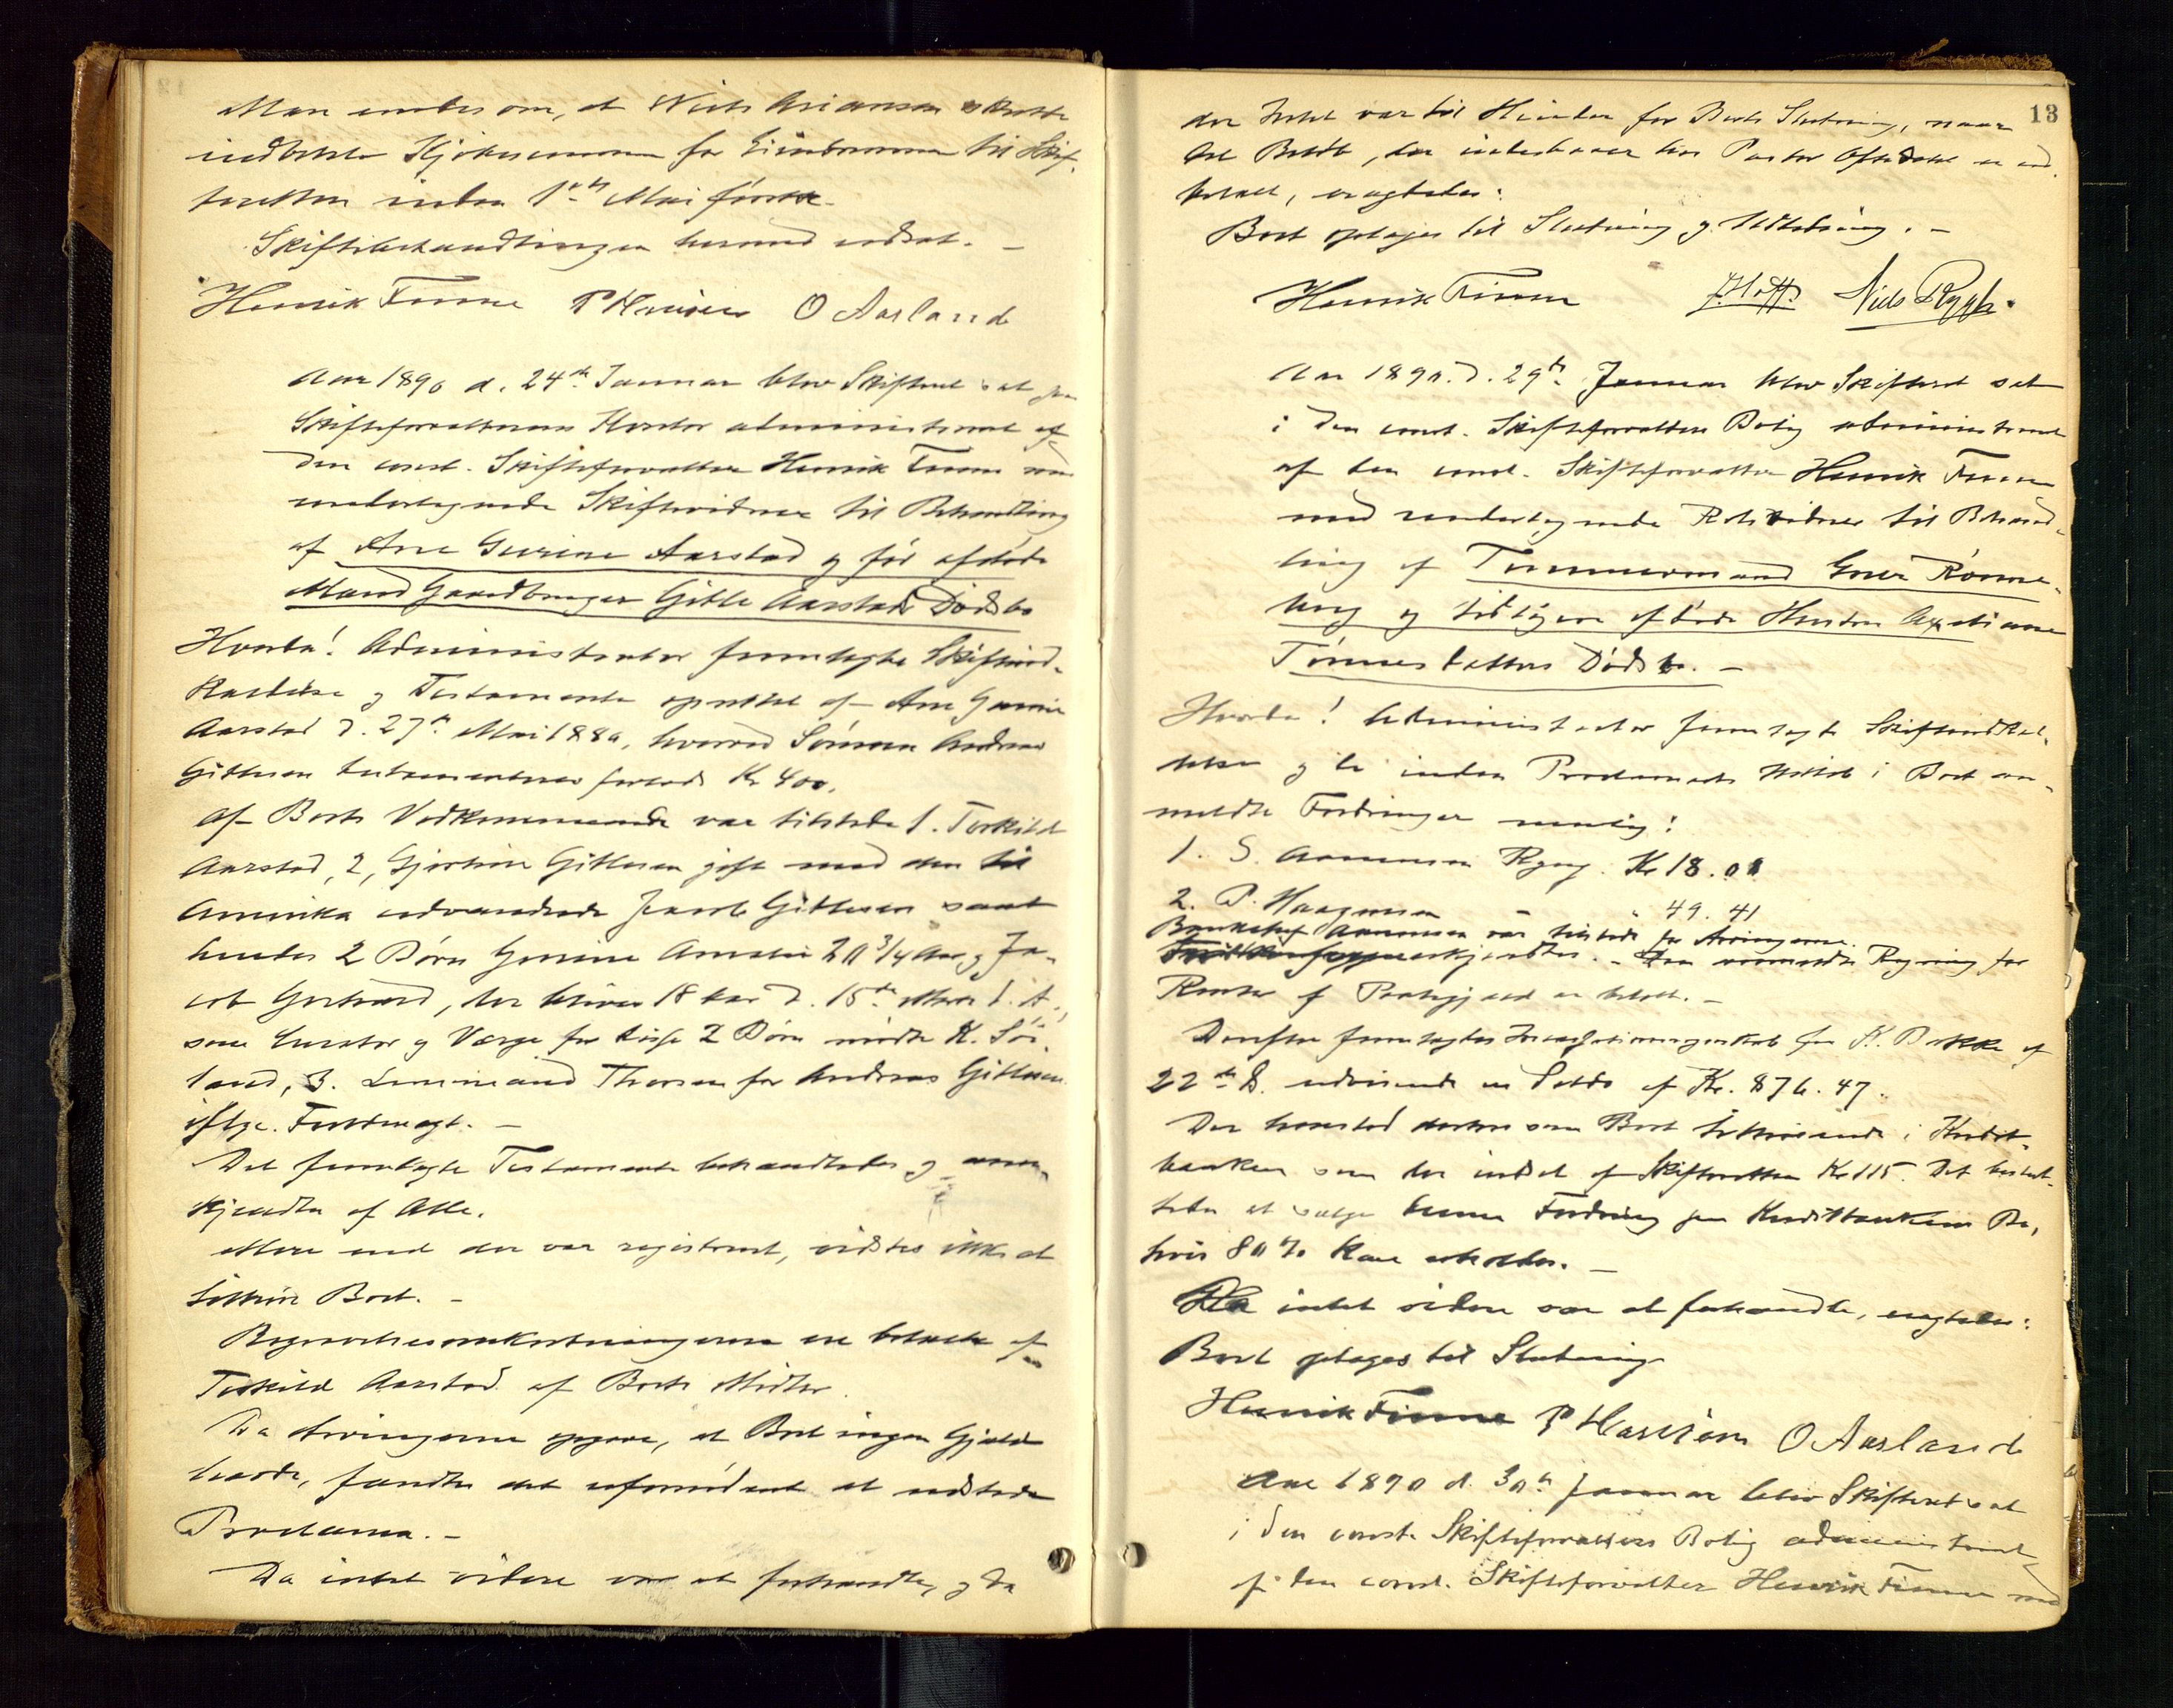 Man enedes om, at Niels Arianson skulde
indbetale Kjøbesummen for Eiendommen til Skif-
teretten inden 1ste Mai først.
Skiftebehandlingen hermed udsat. -
Henrik Finne P Hansen O Aarland
Aar 1890 d. 24de Januar blev Skifteret sat paa
Skifteforvalterens Kontor administreret af
den const. Skifteforvalter Henrik Finne med
undertegnede Skiftevidner til Behandling
af Ane Gurine Aarstad og før afdøde
Mand Gaardbruger Gitle Aarstads Dødsbo
Hvorda! Administrator fremlagte Skifteind-
kaldelse og Testamente oprettet af Ane Gurine
Aarstad d. 27de Mai 1880, hvorved Sønnen Andreas
Gitlesen testamenteres forlods Kr 400.
Af Boets Vedkommende var tilstede 1. Torkild
Aarstad, 2, Gjertine Gitlesen gift med den til
Amerika udvandrede Jacob Gitlesen samt
hendes 2 Børn Gurine Amalie 20 3/4 Aar og Ja-
cob Gerhard, der bliver 18 Aar d. 15de Marts d. A.,
som Curator og Værge for disse 2 Børn mødte K. Sø-
land, 3. Lensmand Thorsen for Andreas Gitlesen
iflge. Fuldmagt. -
Det fremlagte Testamente behandledes og aner-
kjendtes af Alle.
Mere end der var registreret, vidstes ikke at
tilhøre Boet. -
Begravelsesomkostningerne ere betalte af
Torkild Aarstad af Boets Midler.
Da Arvingerne opgave, at Boet ingen Gjæld
havde, fandtes det ufornødent at udstede
Proclama. -
Da intet videre var at forhandle, og da
13
der Intet var til Hinder for Boets Slutning, naar
det Beløb, der indestaaer hos Pastor Oftedal er ind-
betalt, eragtedes:
Boet optages til Slutning og Udlodning. -
Henrik Finne Niels Rygh.
Aar 1890. d. 29de Januar blev Skifteret sat
i den const. Skifteforvalters Bolig administreret
af den const. Skifteforvalter Henrik Finne
med undertegnede Retsvidner til Behand-
ling af Tømmermand Rønne-
berg og tidligere afdøde Hustru Axeliane
Tønnesdatters Dødsbo. -
Hvorda! Administrator fremlagte Skifteindkal-
delse og de inden Proclamaets Udløb i Boet an-
meldte Fordringer nemlig:
1. S. Aanensen Regng. Kr 18.00
2. P. Haagensen - " 49.41
Aanensen var tilstede for Arvingerne.
anerkjendtes. - Den anmeldte Regning for
af Pantegjæld er betalt. -
Derefter fremlagdes fra K. Bakke af
22de ds. udvisende en Saldo af Kr. 876.47.
Der henstod desuden som Boet tilhørende i Kredit-
banken som der indsat af Skifteretten Kr 115. Det beslut-
tedes at sælge denne Fordring paa Kreditbankens Bo,
hvis 80 % kan erholdes. -
Da intet videre var at forhandle, eragtedes:
Boet optages til Slutning
Henrik Finne P Hansen O Aarland
Aar 1890 d. 30te Januar blev Skifteret sat
i den const. Skifteforvalters Bolig administreret
af den const. Skifteforvalter Henrik Finne med